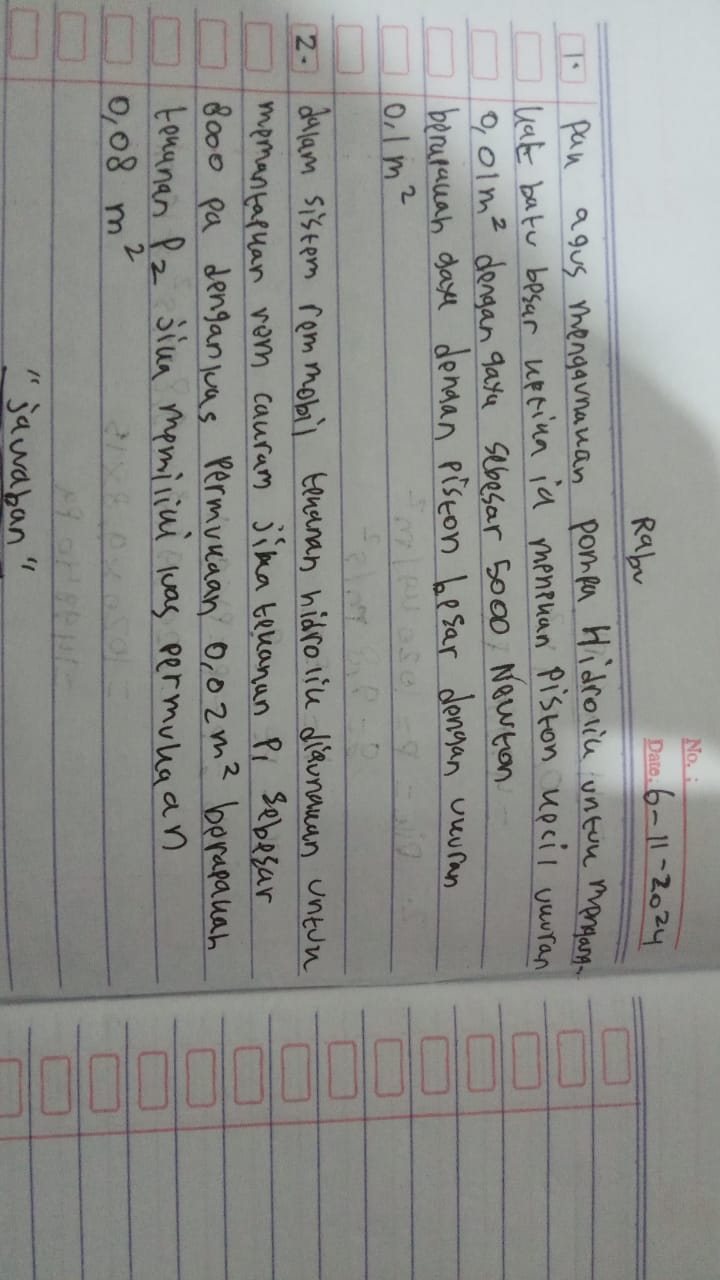 No. :
Date. 6-11-2024
Rabu
1. pak agus menggunakan pompa Hidrolik untuk mengang-
kat batu besar ketika id menekan piston kecil ukuran
0,01 m² dengan gaya sebesar 5000 Newton
berapakah gaya dengan piston besar dengan ukuran
0,1 m²
2. dalam sistem rem mobil tekanan hidrolik digunakan untuk
memantapkan rem cakram jika tekanan P1 sebesar
8000 pa dengan luas permukaan 0,02 m² berapakah
tekanan P2 jika memiliki luas permukaan
0,08 m²
"jawaban"